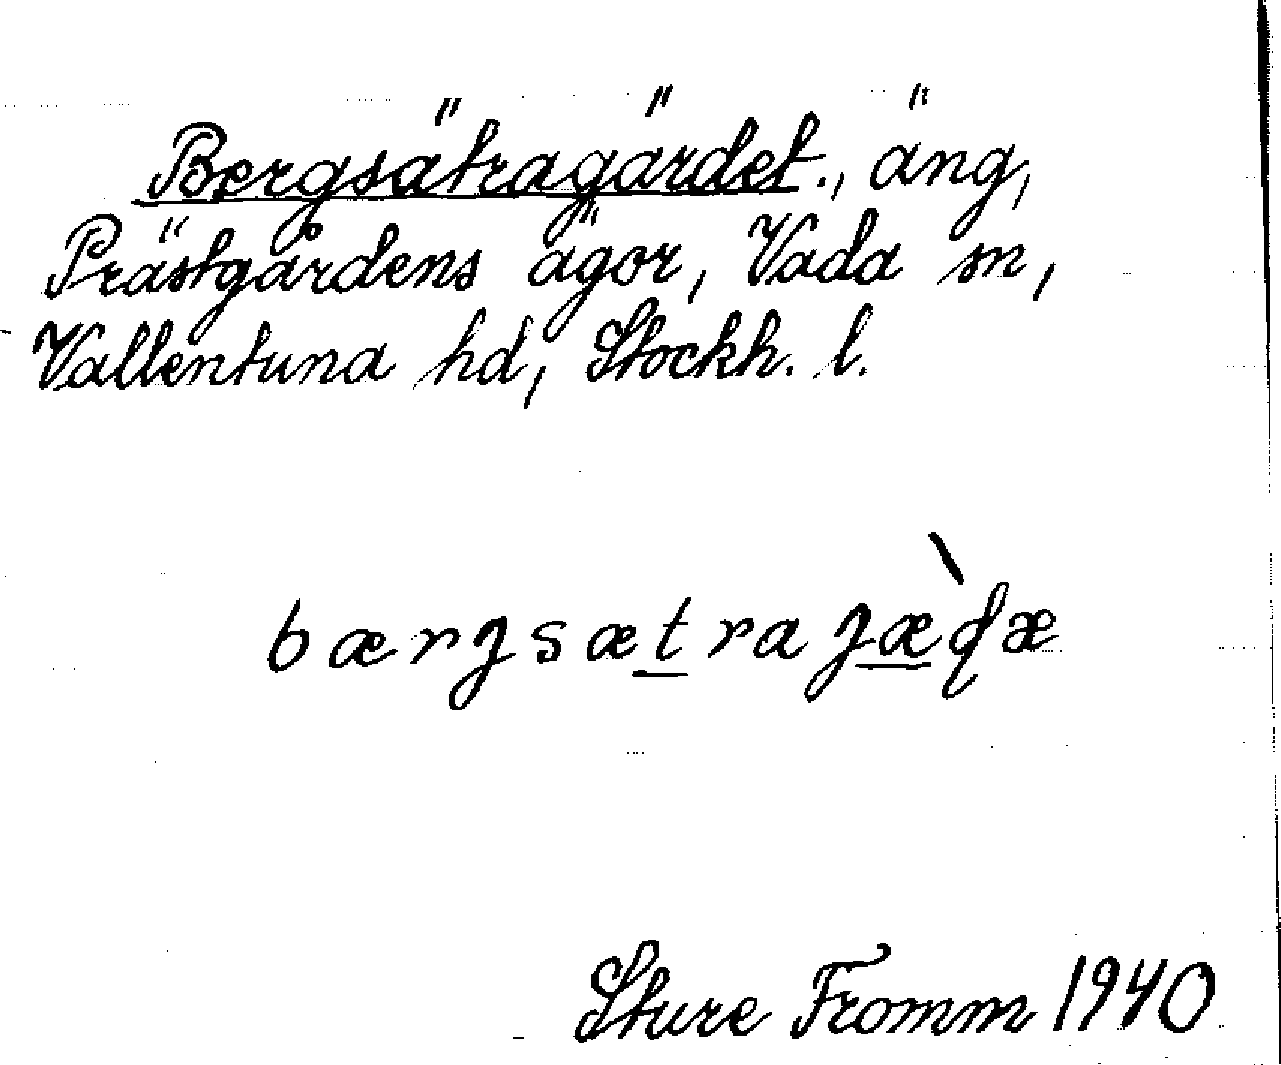 Bergsätragärdet., äng,
Prästgårdens ägor, Vada sn,
Vallentuna hd, Stockh. l.
Sture Fromm 1940